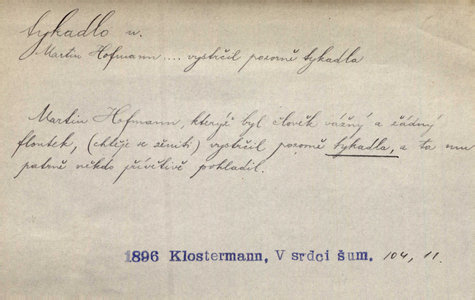 tykadlo n.
Martin Hofmann .... vystrčil pozorně tykadla
Martin Hofmann, kterýž byl člověk vážný a žádný
floutek, (chtěje se ženiti) vystrčil pozorně tykadla, a ta mu
patrně někdo přívětivě pohladil.
1896 Klostermann, V srdci šum. 104, 11.